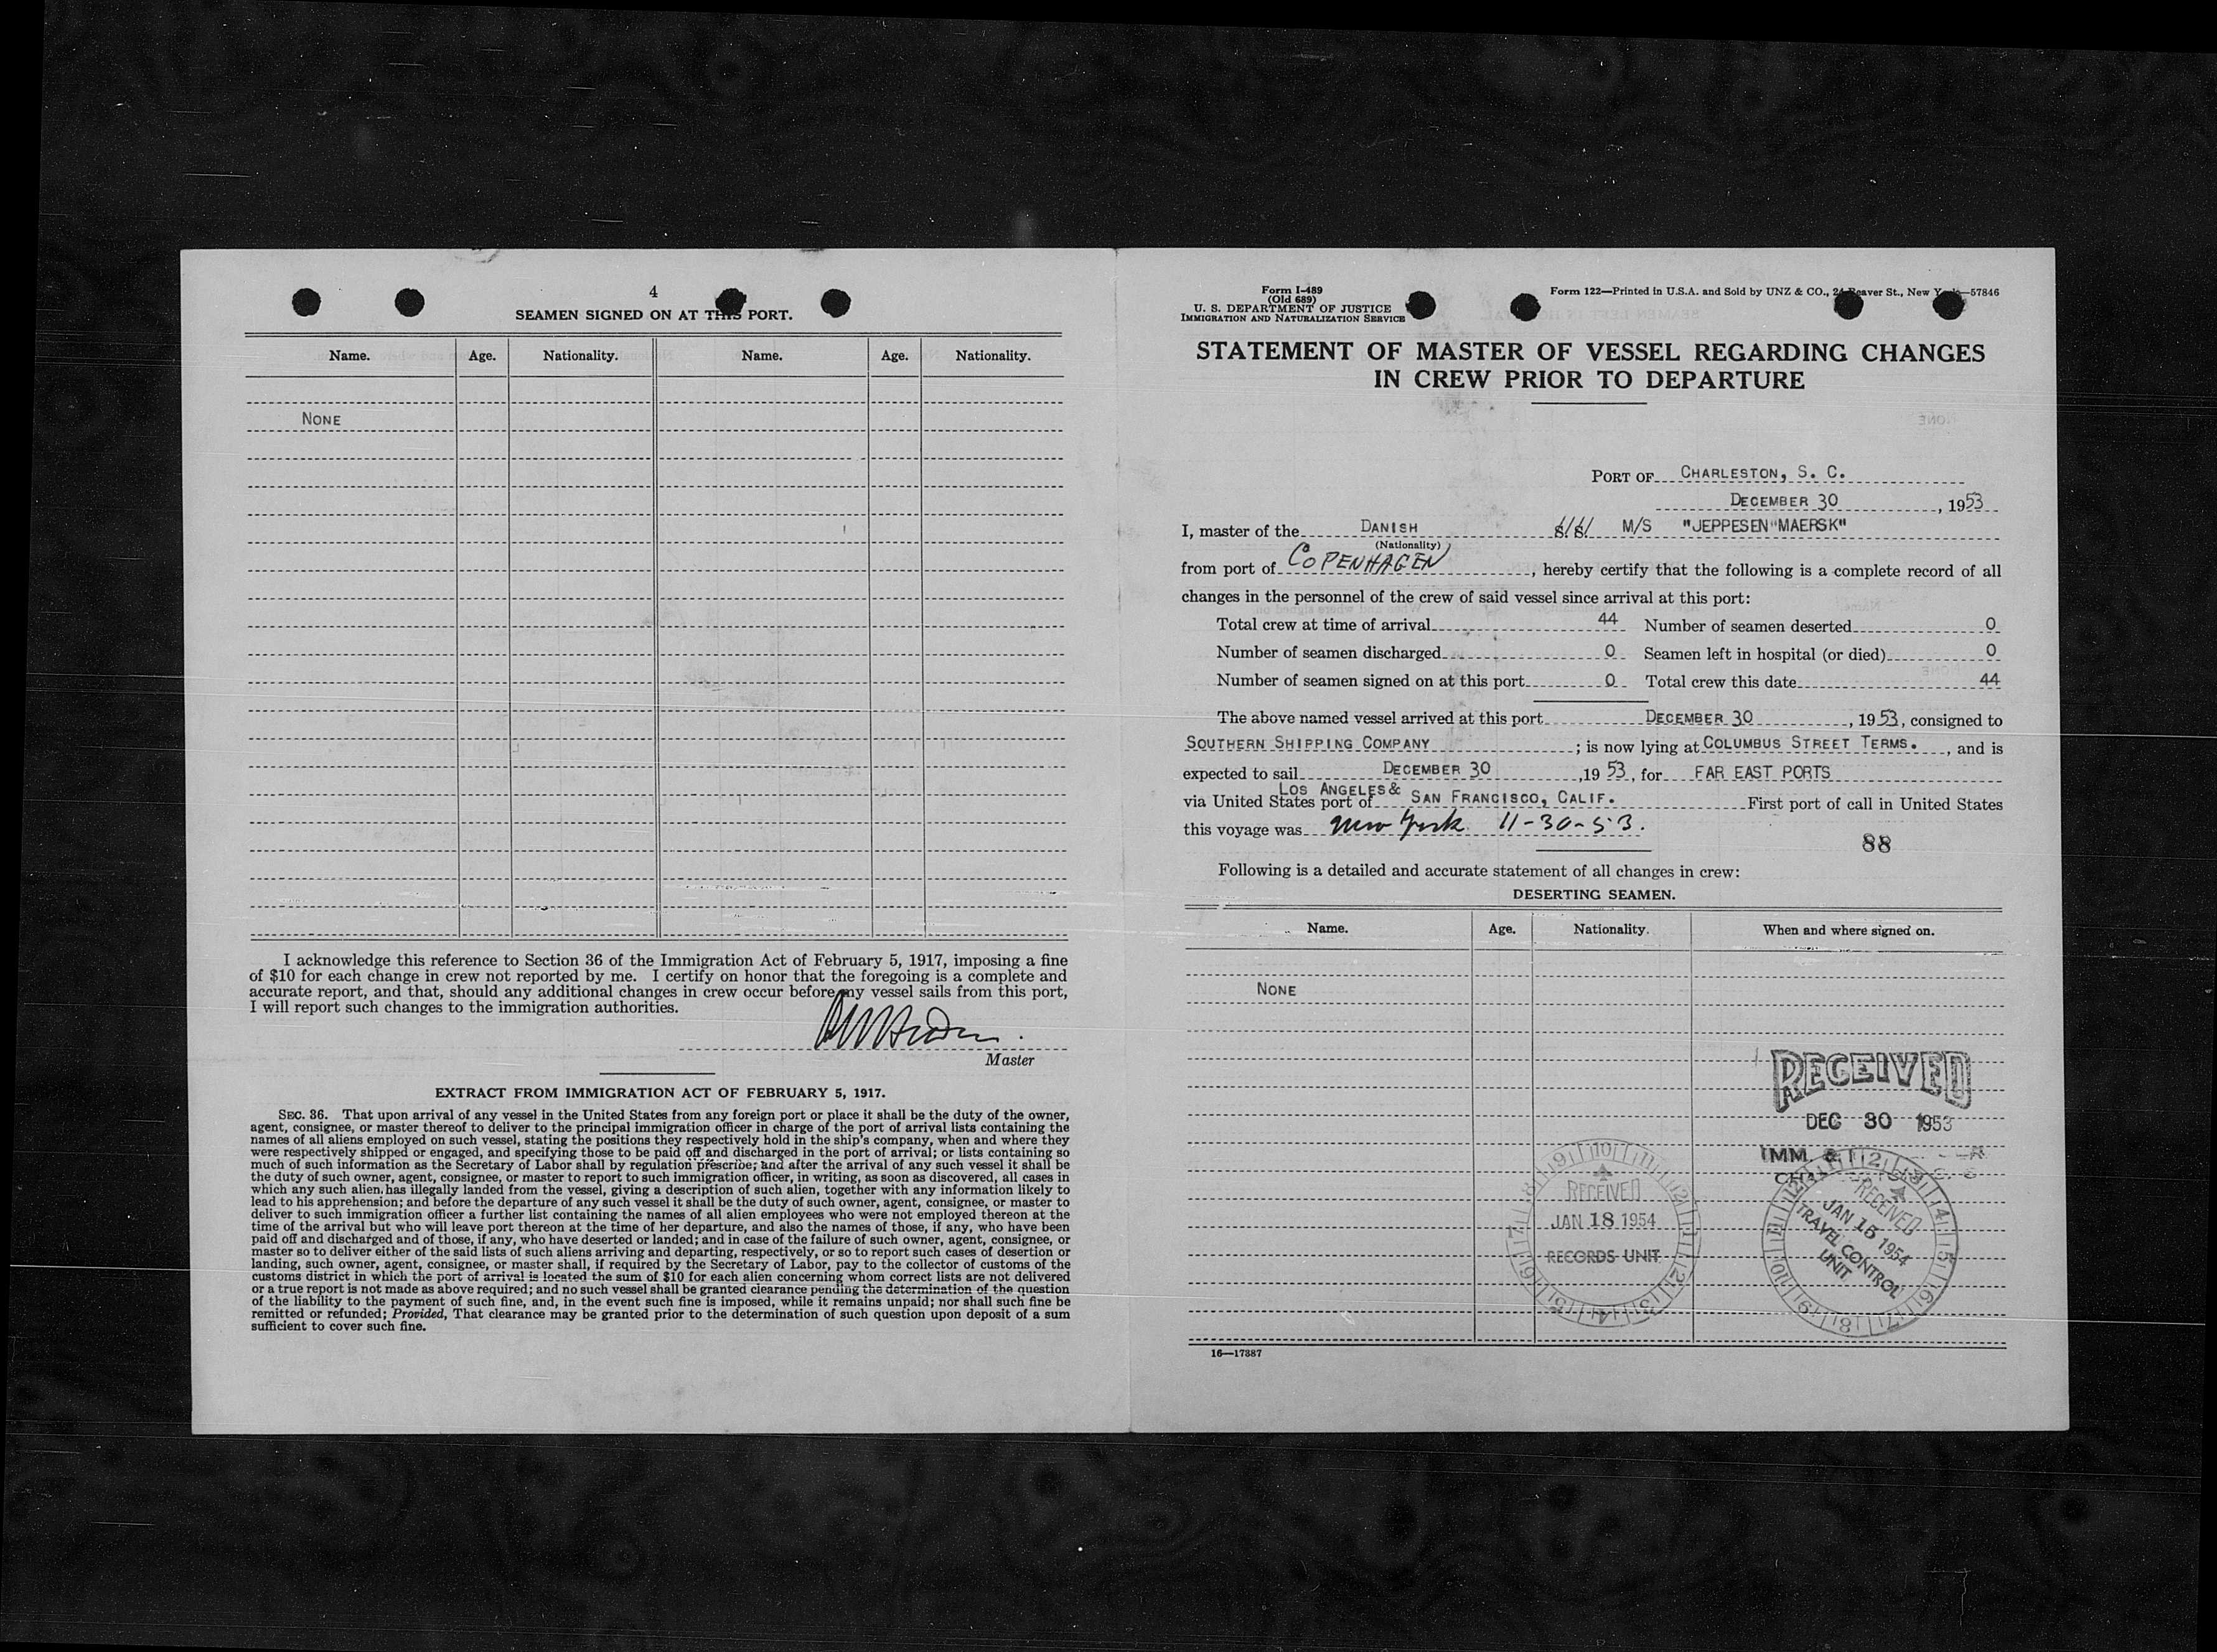 4
SEAMEN SIGNED ON AT THIS PORT.
Name. Age. Nationality. Name. Age. Nationality.
NONE
I acknowledge this reference to Section 36 of the Immigration Act of February 5, 1917, imposing a fine
of $10 for each change in crew not reported by me. I certify on honor that the foregoing is a complete and
accurate report, and that, should any additional changes in crew occur before my vessel sails from this port,
I will report such changes to the immigration authorities.
Master
EXTRACT FROM IMMIGRATION ACT OF FEBRUARY 5, 1917.
SEC. 36. That upon arrival of any vessel in the United States from any foreign port or place it shall be the duty of the owner,
agent, consignee, or master thereof to deliver to the principal immigration officer in charge of the port of arrival lists containing the
names of all aliens employed on such vessel, stating the positions they respectively hold in the ship's company, when and where they
were respectively shipped or engaged, and specifying those to be paid off and discharged in the port of arrival; or lists containing so
much of such information as the Secretary of Labor shall by regulation prescribe; and after the arrival of any such vessel it shall be
the duty of such owner, agent, consignee, or master to report to such immigration officer, in writing, as soon as discovered, all cases in
which any such alien has illegally landed from the vessel, giving a description of such alien, together with any information likely to
lead to his apprehension; and before the departure of any such vessel it shall be the duty of such owner, agent, consignee, or master to
deliver to such immigration officer a further list containing the names of all alien employees who were not employed thereon at the
time of the arrival but who will leave port thereon at the time of her departure, and also the names of those, if any, who have been
paid off and discharged and of those, if any, who have deserted or landed; and in case of the failure of such owner, agent, consignee, or
master so to deliver either of the said lists of such aliens arriving and departing, respectively, or so to report such cases of desertion or
landing, such owner, agent, consignee, or master shall, if required by the Secretary of Labor, pay to the collector of customs of the
customs district in which the port of arrival is located the sum of $10 for each alien concerning whom correct lists are not delivered
or a true report is not made as above required; and no such vessel shall be granted clearance pending the determination of the question
of the liability to the payment of such fine, and, in the event such fine is imposed, while it remains unpaid; nor shall such fine be
remitted or refunded; Provided, That clearance may be granted prior to the determination of such question upon deposit of a sum
sufficient to cover such fine.
Form I-489
(Old 689)
U. S. DEPARTMENT OF JUSTICE
IMMIGRATION AND NATURALIZATION SERVICE
Form 122—Printed in U.S.A. and Sold by UNZ & CO., 24 Beaver St., New York—57846
STATEMENT OF MASTER OF VESSEL REGARDING CHANGES
IN CREW PRIOR TO DEPARTURE
PORT OF CHARLESTON, S. C.
DECEMBER 30, 1953
I, master of the DANISH S/S/ M/S "JEPPESEN"MAERSK"
(Nationality)
from port of COPENHAGEN, hereby certify that the following is a complete record of all
changes in the personnel of the crew of said vessel since arrival at this port:
Total crew at time of arrival 44 Number of seamen deserted 0
Number of seamen discharged 0 Seamen left in hospital (or died) 0
Number of seamen signed on at this port 0 Total crew this date 44
The above named vessel arrived at this port DECEMBER 30, 1953, consigned to
SOUTHERN SHIPPING COMPANY; is now lying at COLUMBUS STREET TERMS., and is
expected to sail DECEMBER 30, 1953, for FAR EAST PORTS
via United States port of LOS ANGELES & SAN FRANCISCO, CALIF. First port of call in United States
this voyage was New York 11-30-53.
88
Following is a detailed and accurate statement of all changes in crew:
DESERTING SEAMEN.
Name. Age. Nationality. When and where signed on.
NONE
RECEIVED
DEC 30 1953
IMM. &
RECEIVED
JAN 18 1954
RECORDS UNIT
RECEIVED
JAN 15 1954
TRAVEL CONTROL
UNIT
16—17387